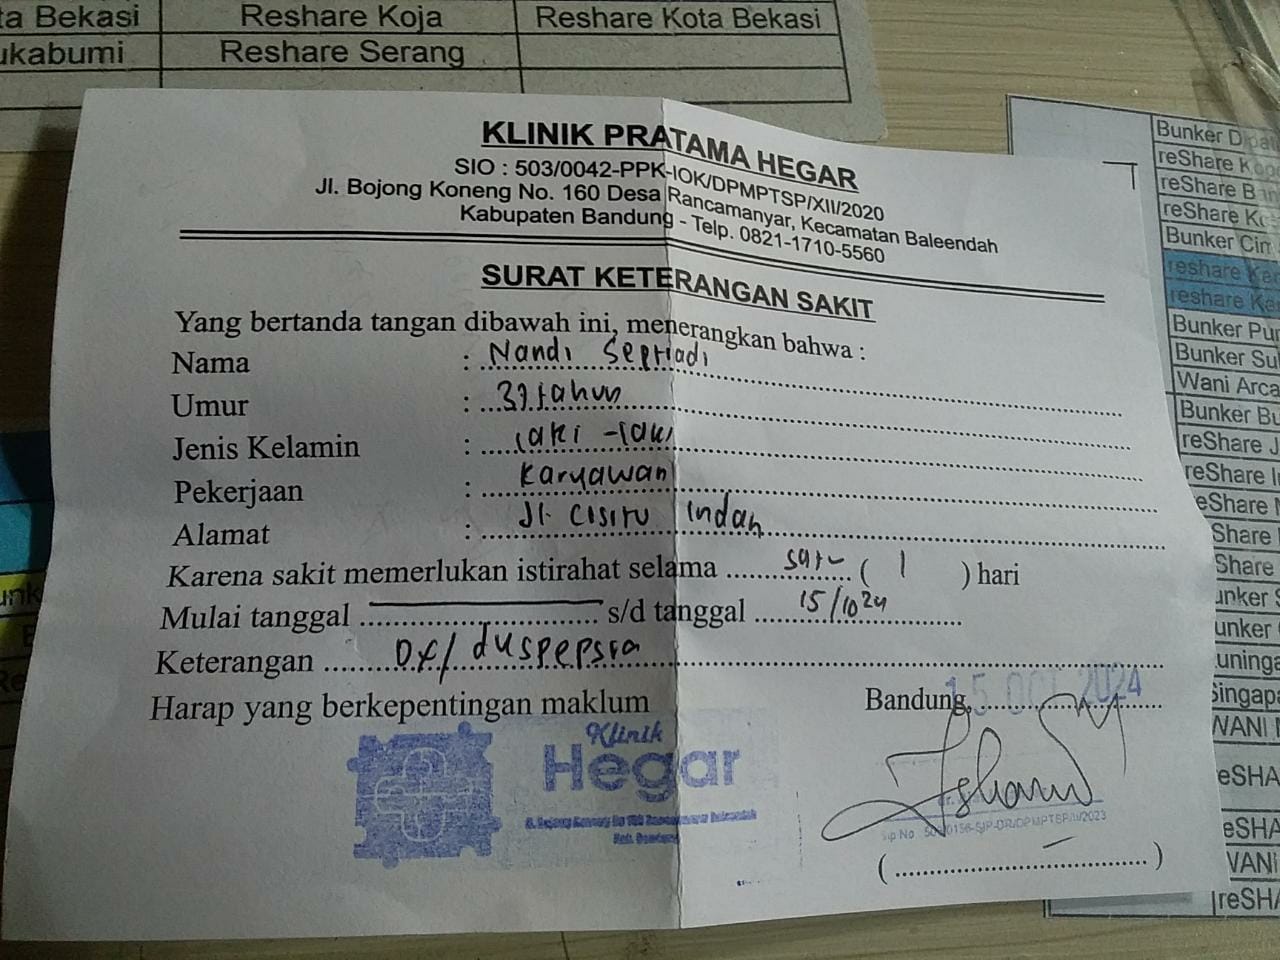 ta Bekasi Reshare Koja Reshare Kota Bekasi
ukabumi Reshare Serang
KLINIK PRATAMA HEGAR
SIO : 503/0042-PPK-IOK/DPMPTSP/XII/2020
Jl. Bojong Koneng No. 160 Desa Rancamanyar, Kecamatan Baleendah
Kabupaten Bandung - Telp. 0821-1710-5560
SURAT KETERANGAN SAKIT
Yang bertanda tangan dibawah ini, menerangkan bahwa :
Nama : Nandi Septiadi
Umur : 37 tahun
Jenis Kelamin : laki-laki
Pekerjaan : Karyawan
Alamat : Jl. Cisitu indah
Karena sakit memerlukan istirahat selama satu ( 1 ) hari
Mulai tanggal s/d tanggal 15/1024
Keterangan Dx/ duspepsia
Harap yang berkepentingan maklum
Bandung, 15 OCT 2024
Klinik
Hegar
(....................................)
Bunker Dipati
reShare
reShare
reShare
Bunker Cim
reshare
reshare
Bunker Pu
Bunker Su
Wani Arca
Bunker Bu
reShare J
reShare I
eShare
Share
Share
unker
unker
uninga
Singapa
WANI
eSHA
eSHA
VANI
reSHA